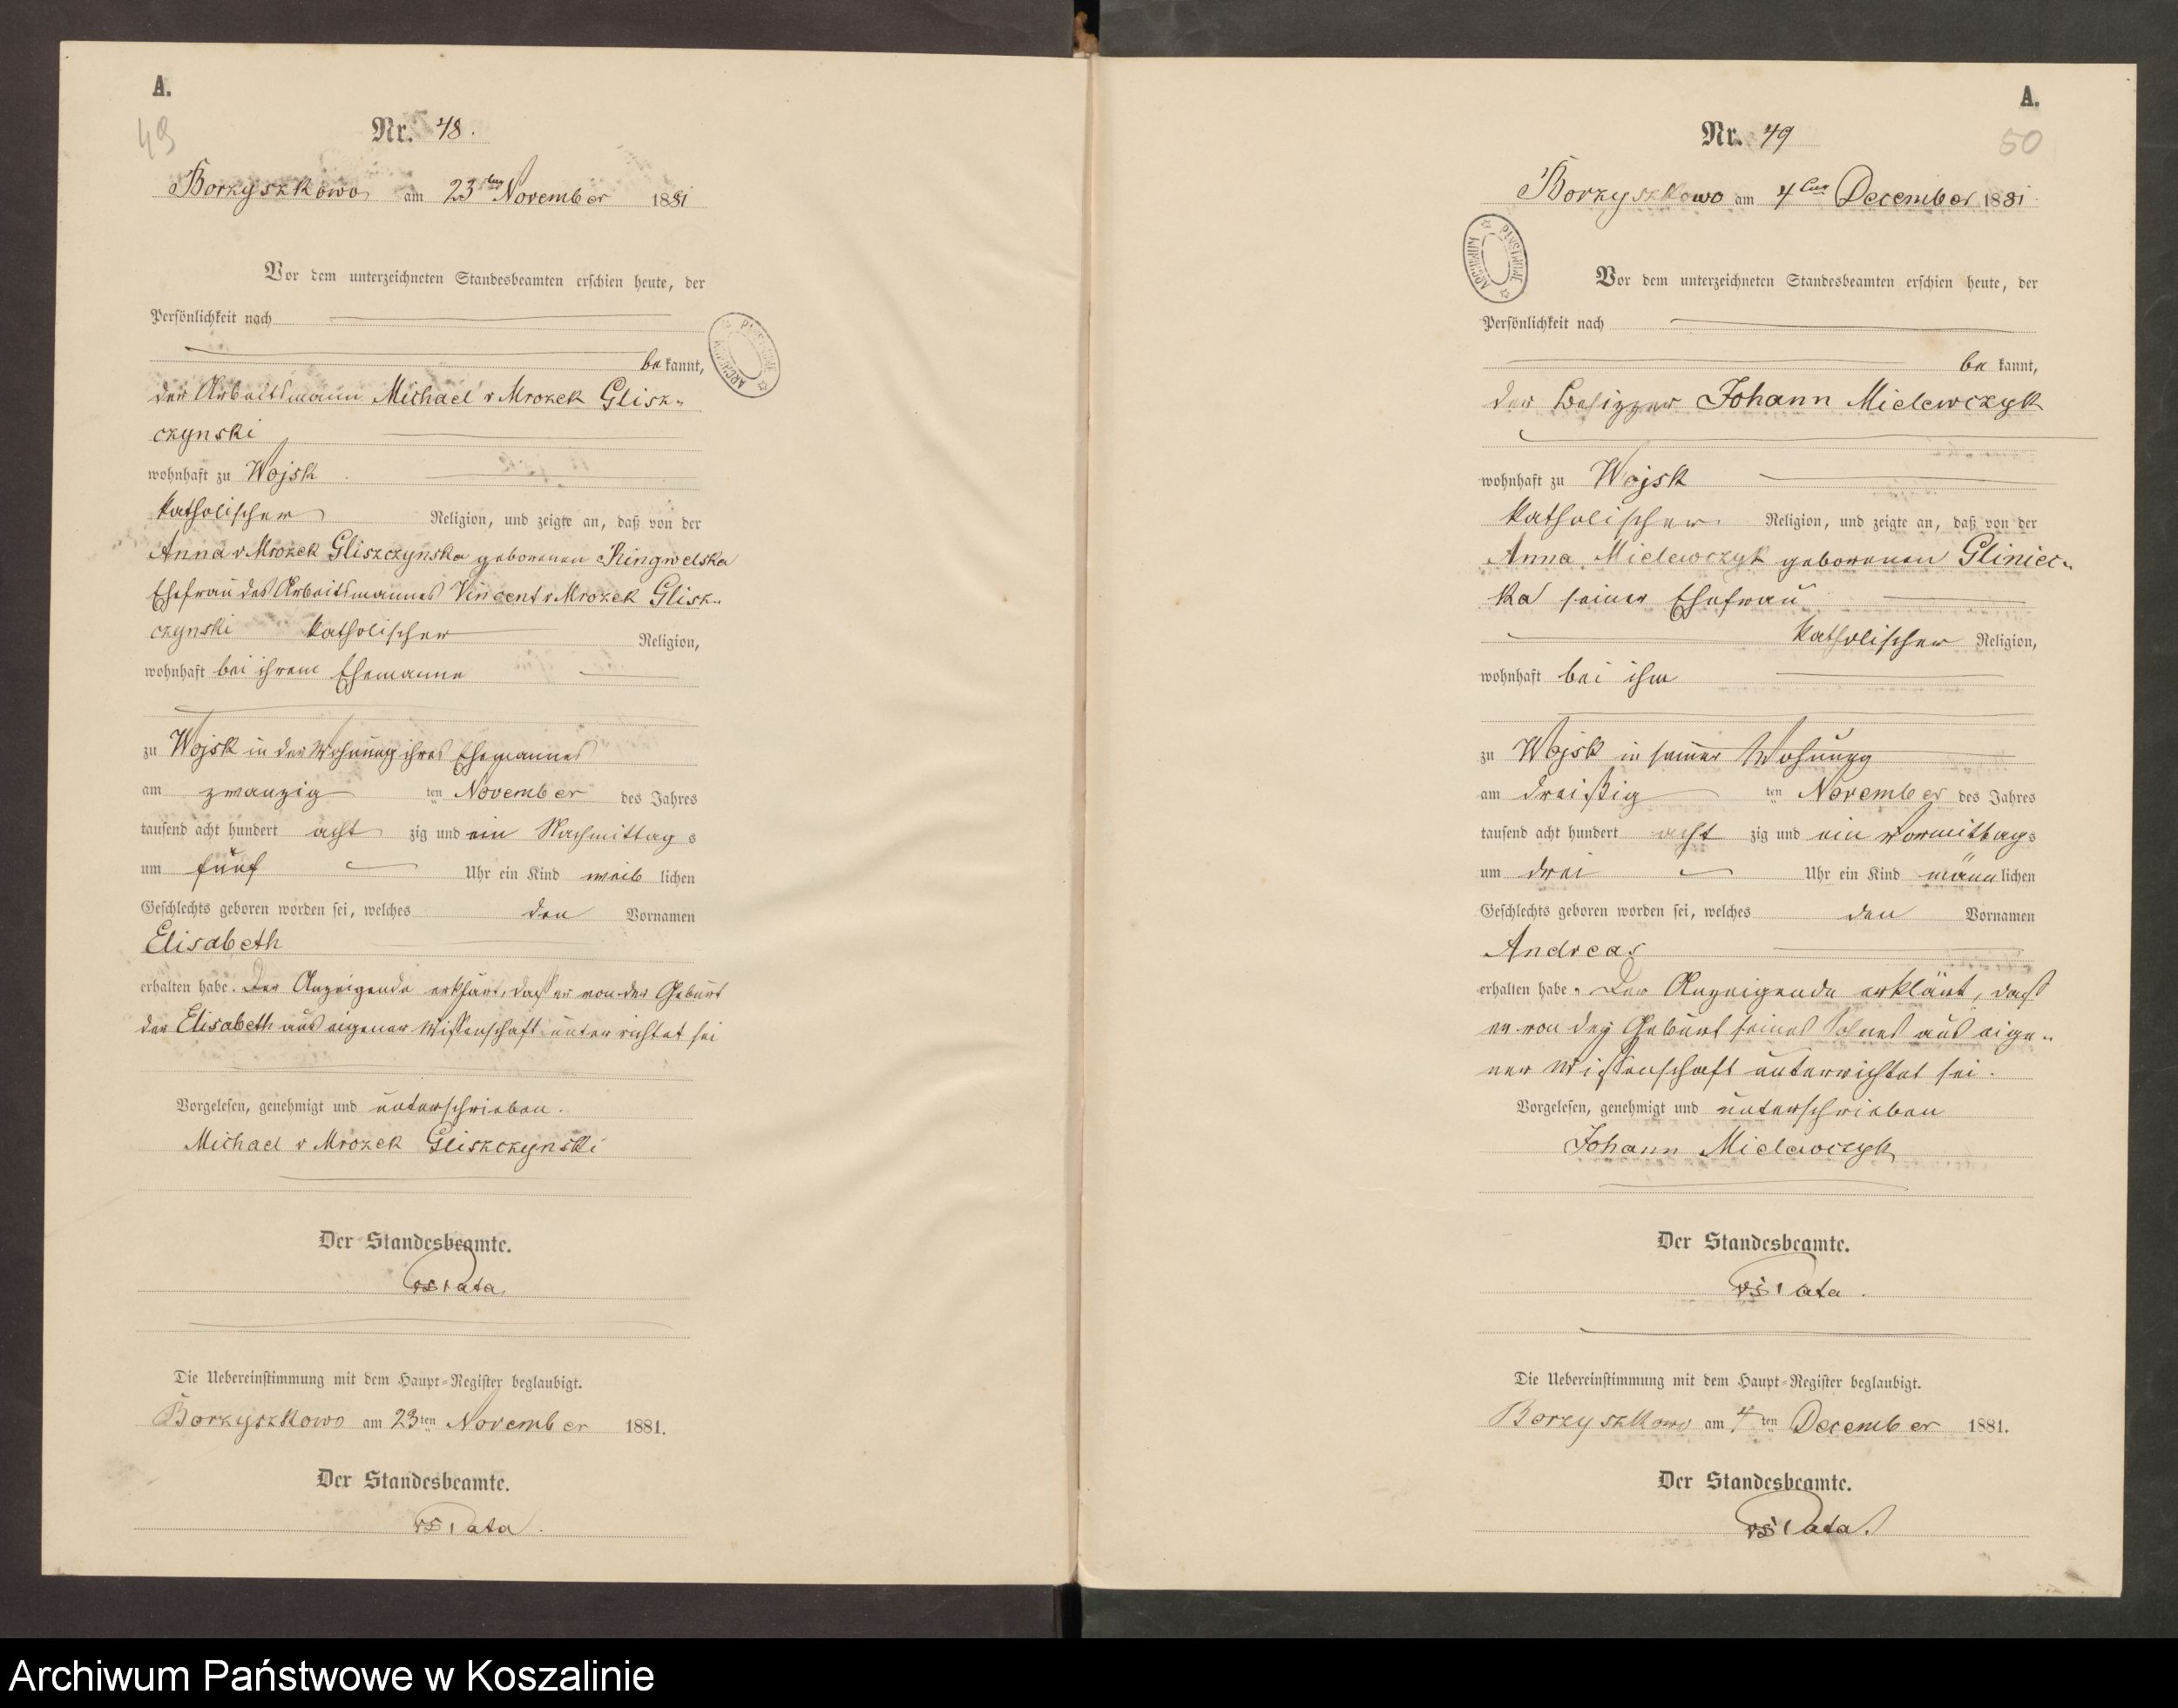 A.
49
Nr. 48.
Borzyszkowo am 23ten November 1881
Vor dem unterzeichneten Standesbeamten erschien heute, der
Persönlichkeit nach
be kannt,
der Arbeitsmann Michael v Mrozek Glisz-
czynski
wohnhaft zu Wojsk
katholischer Religion, und zeigte an, daß von der
Anna v Mrozek Gliszczynska geborenen Kingwelska
Ehefrau des Arbeitsmannes Vincent v Mrozek Glisz-
czynski katholischer Religion,
wohnhaft bei ihrem Ehemanne
zu Wojsk in der Wohnung ihres Ehemannes
am zwanzig ten November des Jahres
tausend acht hundert acht zig und ein Nachmittag s
um fünf Uhr ein Kind weib lichen
Geschlechts geboren worden sei, welches den Vornamen
Elisabeth
erhalten habe. Der Anzeigende erklärt, daß er von der Geburt
der Elisabeth aus eigener Wissenschaft unterrichtet sei
Vorgelesen, genehmigt und unterschrieben.
Michael v Mrozek Gliszczynski
Der Standesbeamte.
Die Uebereinstimmung mit dem Haupt-Register beglaubigt.
Borzyszkowo am 23ten November 1881.
Der Standesbeamte.
A.
50
Nr. 49
Borzyszkowo am 4ten December 1881
ARCHIWUM PAŃSTWOWE
Vor dem unterzeichneten Standesbeamten erschien heute, der
Persönlichkeit nach
be kannt,
der Besitzer Johann Mielewczyk
wohnhaft zu Wojsk
katholischer Religion, und zeigte an, daß von der
Anna Mielewczyk geborenen Gliniec-
ka seiner Ehefrau
katholischer Religion,
wohnhaft bei ihm
zu Wojsk in seiner Wohnung
am dreißig ten November des Jahres
tausend acht hundert acht zig und ein Vormittags
um drei Uhr ein Kind männ lichen
Geschlechts geboren worden sei, welches den Vornamen
Andreas
erhalten habe. Der Anzeigende erklärt, daß
er von der Geburt seines Sohnes aus eige-
ner Wissenschaft unterrichtet sei.
Vorgelesen, genehmigt und unterschrieben
Johann Mielewczyk
Der Standesbeamte.
Die Uebereinstimmung mit dem Haupt-Register beglaubigt.
Borzyszkowo am 4ten December 1881.
Der Standesbeamte.
Archiwum Państwowe w Koszalinie